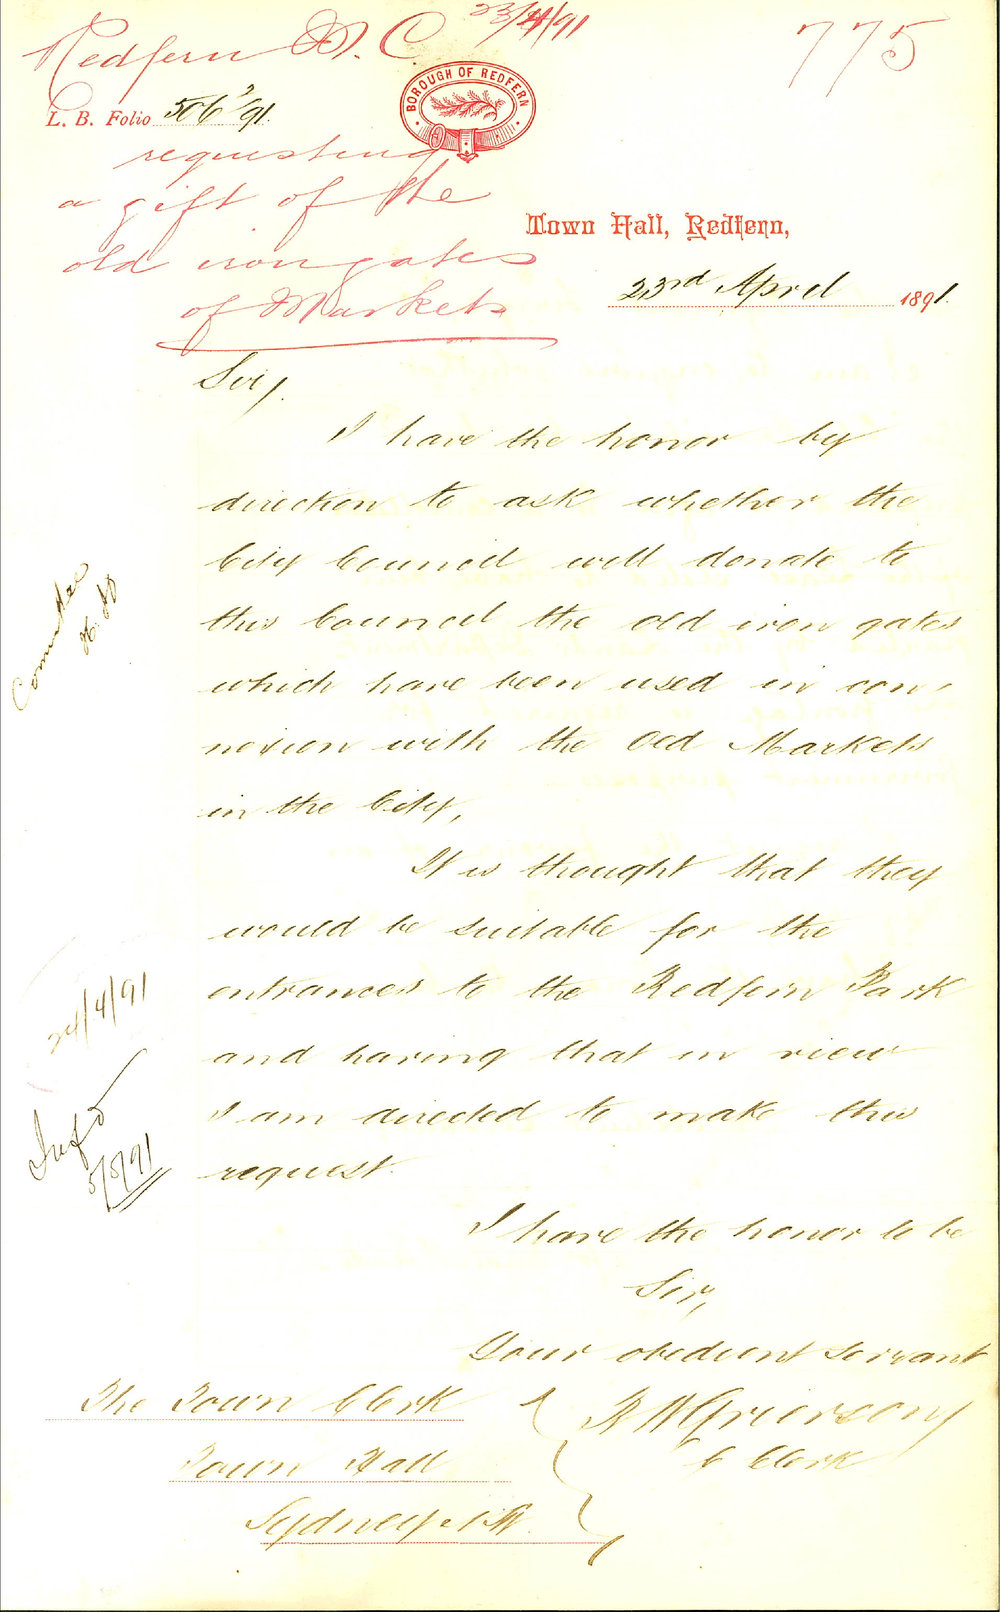 Redfern M. C. 23/4/91
775
BOROUGH OF REDFERN
L. B. Folio 506 91.
requesting
a gift of the
old iron gates
of Markets
Town Hall, Redfern,
23rd April 1891.
Sir,
I have the honor by
direction to ask whether the
City Council will donate to
this Council the old iron gates
which have been used in con
nexion with the Old Markets
in the City,
It is thought that they
would be suitable for the
entrances to the Redfern Park
and having that in view
I am directed to make this
request.
I have the honor to be
Sir,
Your obedient servant
C Clerk
The Town Clerk
Town Hall
Sydney
Committee
24/4/91
5/5/91